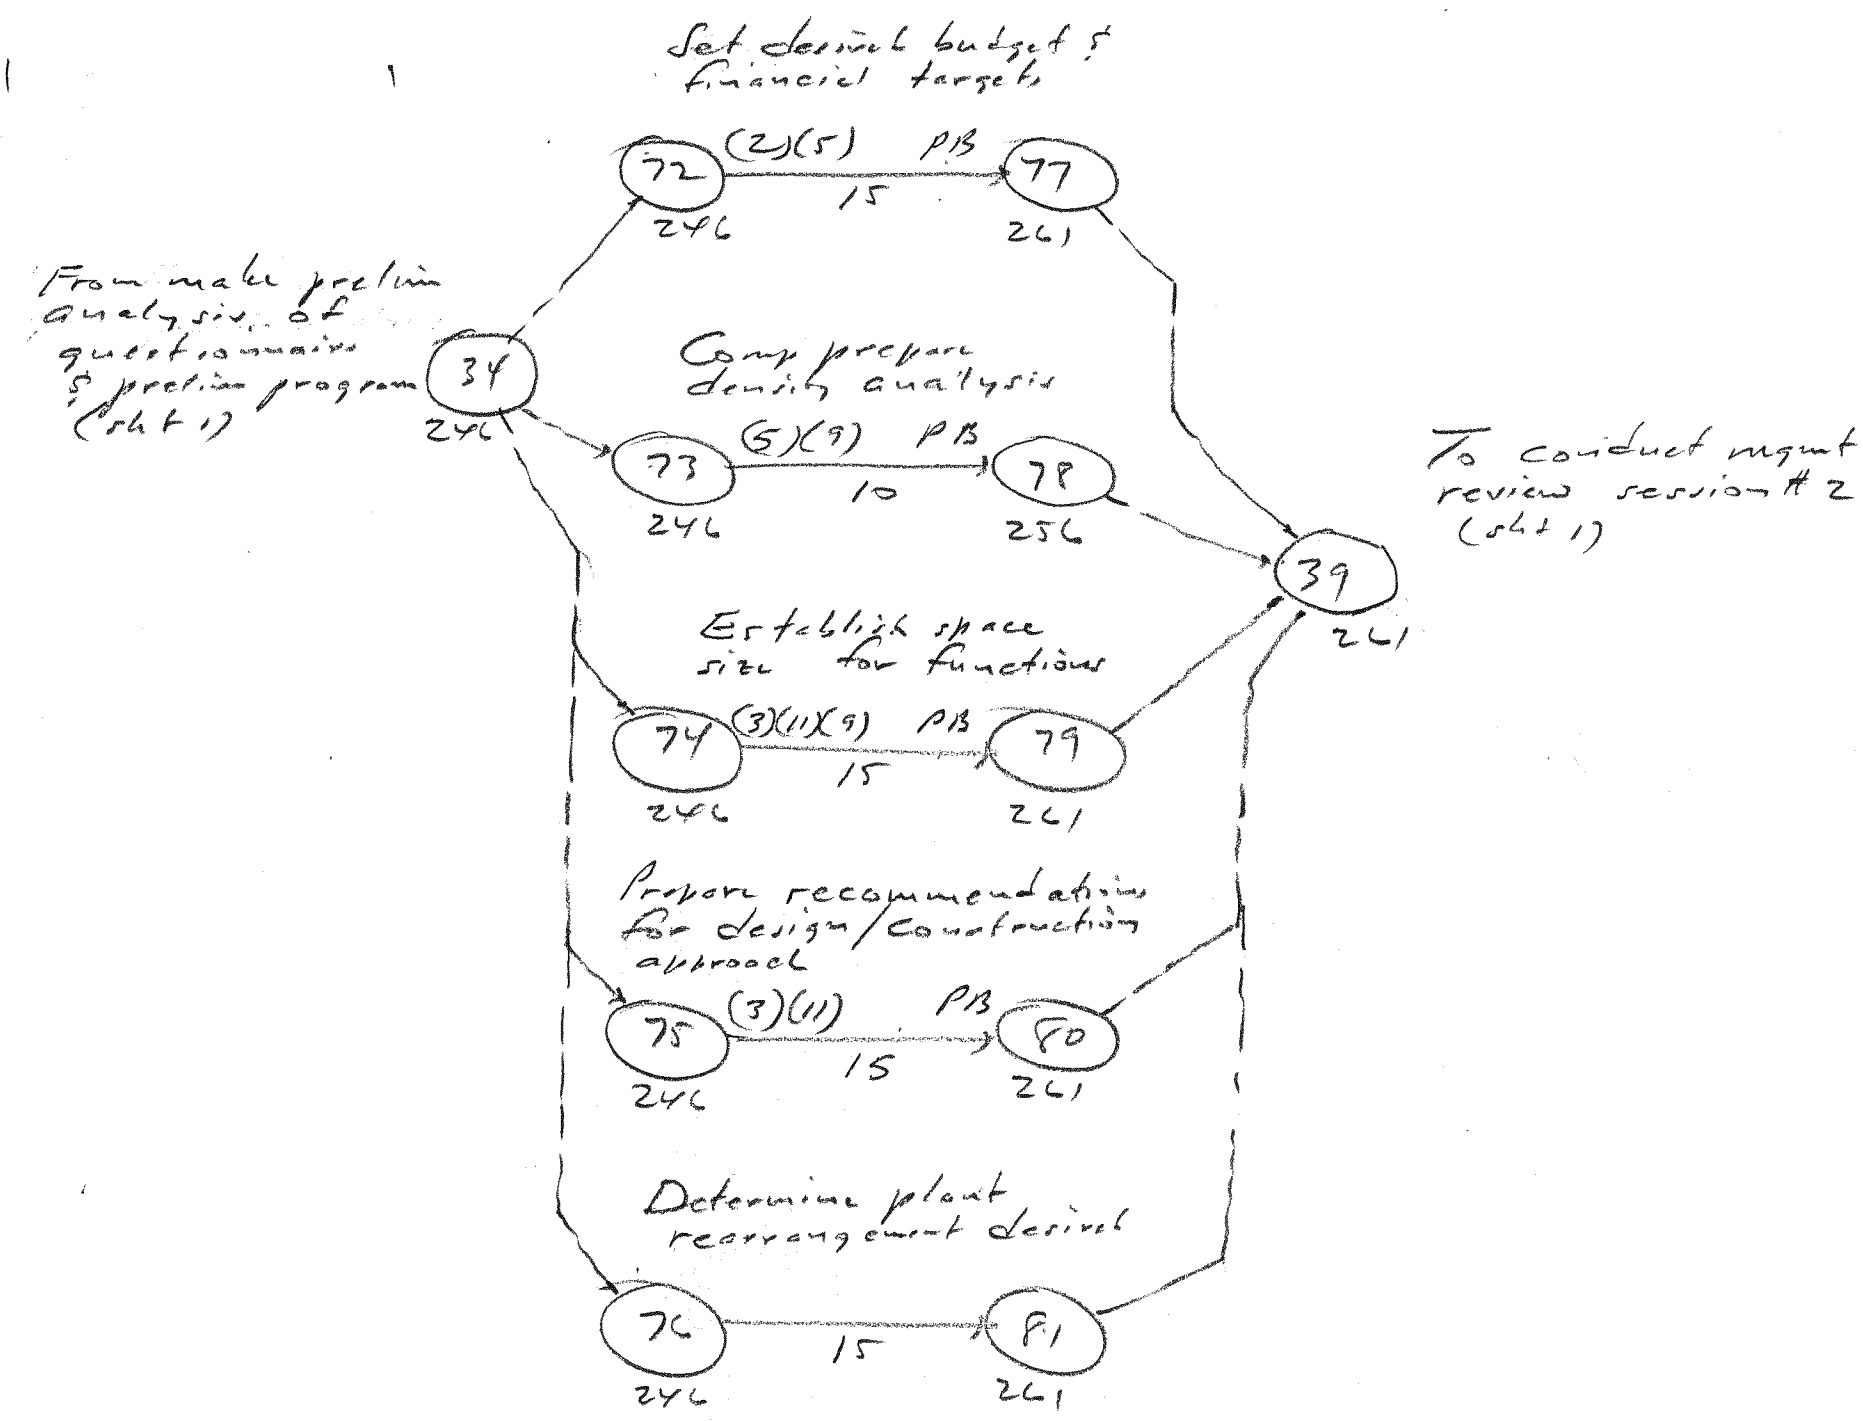 Set desired budget &
financial targets
(2)(5) PB
72
77
15
246
261
From make prelim
analysis of
questionnaire
& prelim program
(sht 1)
34
246
Comp prepare
density analysis
(5)(9) PB
73
78
10
246
256
To conduct mgmt
review session # 2
(sht 1)
39
261
Establish space
size for functions
(3)(11)(9) PB
74
79
15
246
261
Prepare recommendations
for design/construction
approach
(3)(11) PB
75
80
15
246
261
Determine plant
rearrangement desired
76
81
15
246
261